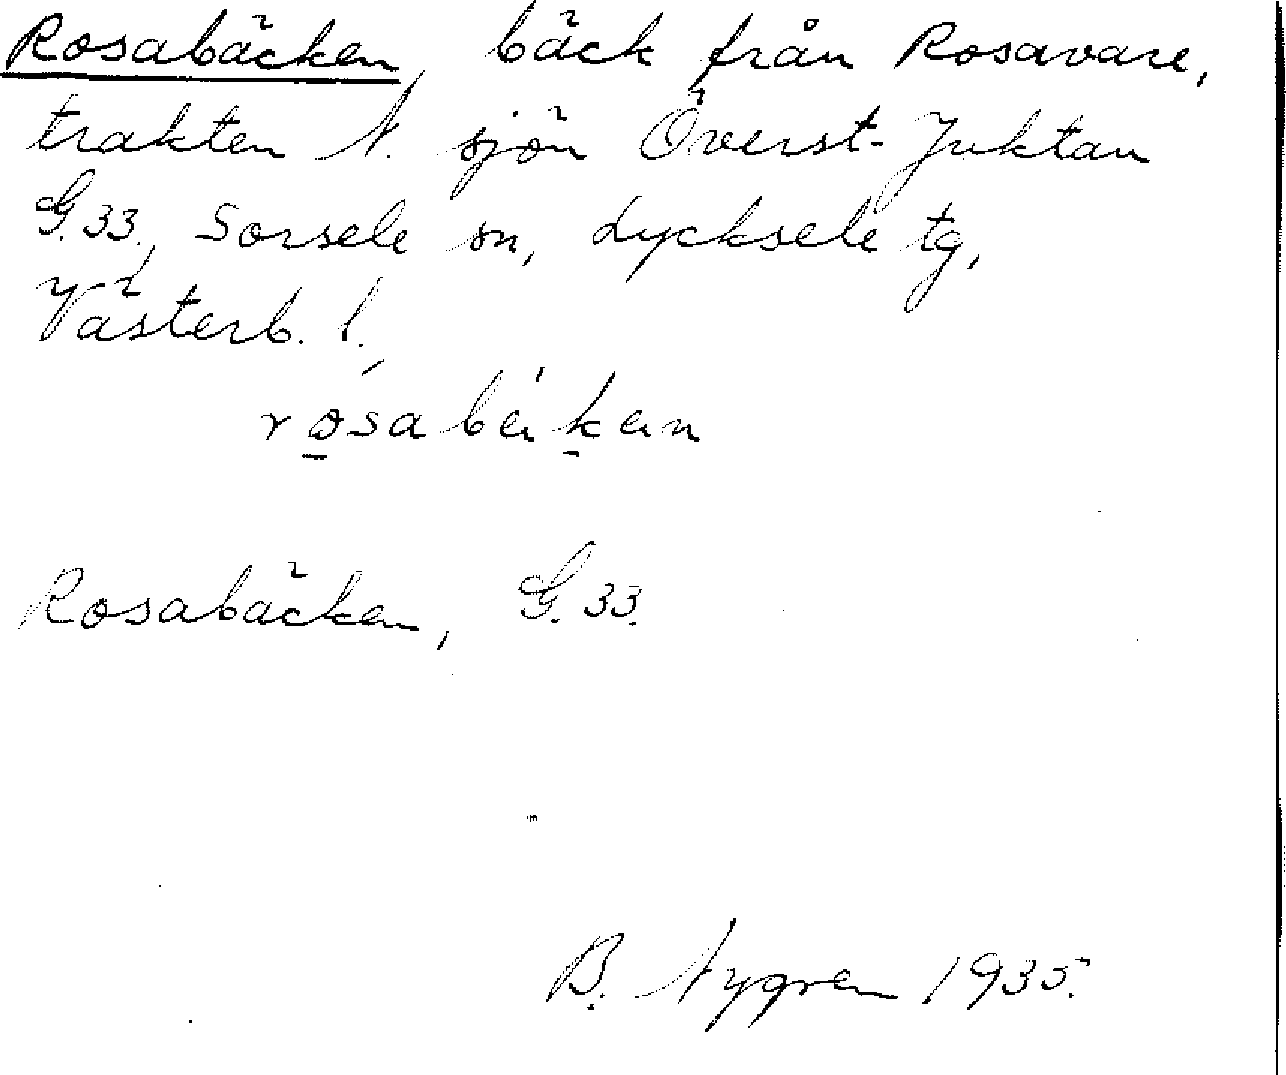 Rosabäcken, bäck från Rosavare,
trakten N. sjön Överst-Juktan
G.33., Sorsele sn, Lycksele tg,
Västerb. l.,
Rosabäcken, G.33.
B. Nygren 1935.